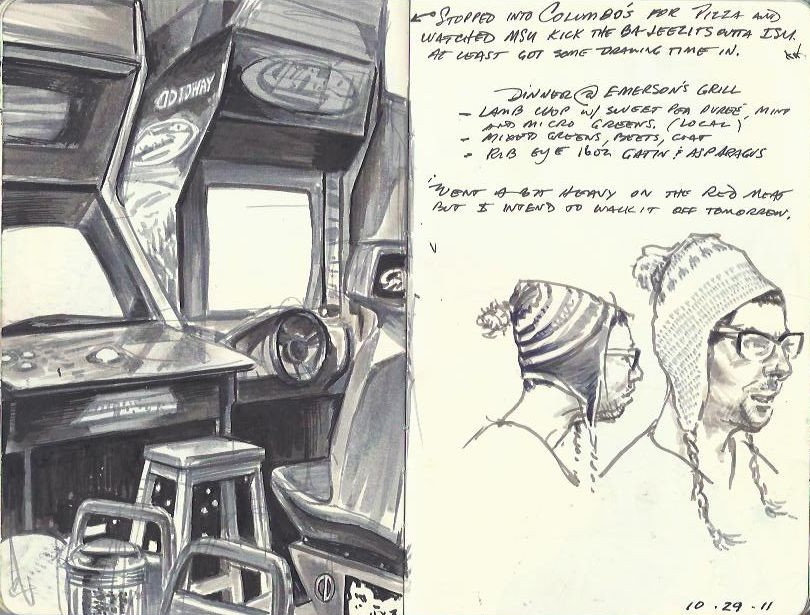 STOPPED INTO COLUMBO'S FOR PIZZA AND
WATCHED MSU KICK THE BAJEEZITS OUTTA ISU.
AT LEAST GOT SOME DRAWING TIME IN.
DINNER @ EMERSON'S GRILL
- LAMB CHOP W/ SWEET PEA PUREE, MINT
AND MICRO GREENS. (LOCAL)
- MIXED GREENS, BEETS, GOAT
- RIB EYE 16OZ GATIN & ASPARAGUS
WENT A BIT HEAVY ON THE RED MEAT
BUT I INTEND TO WALK IT OFF TOMORROW.
10.29.11